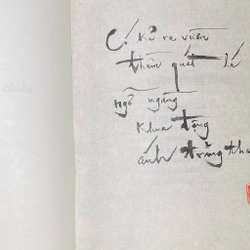 Có kẻ ra vườn
thầm quét lá
ngỡ ngàng
khua động
ánh trăng